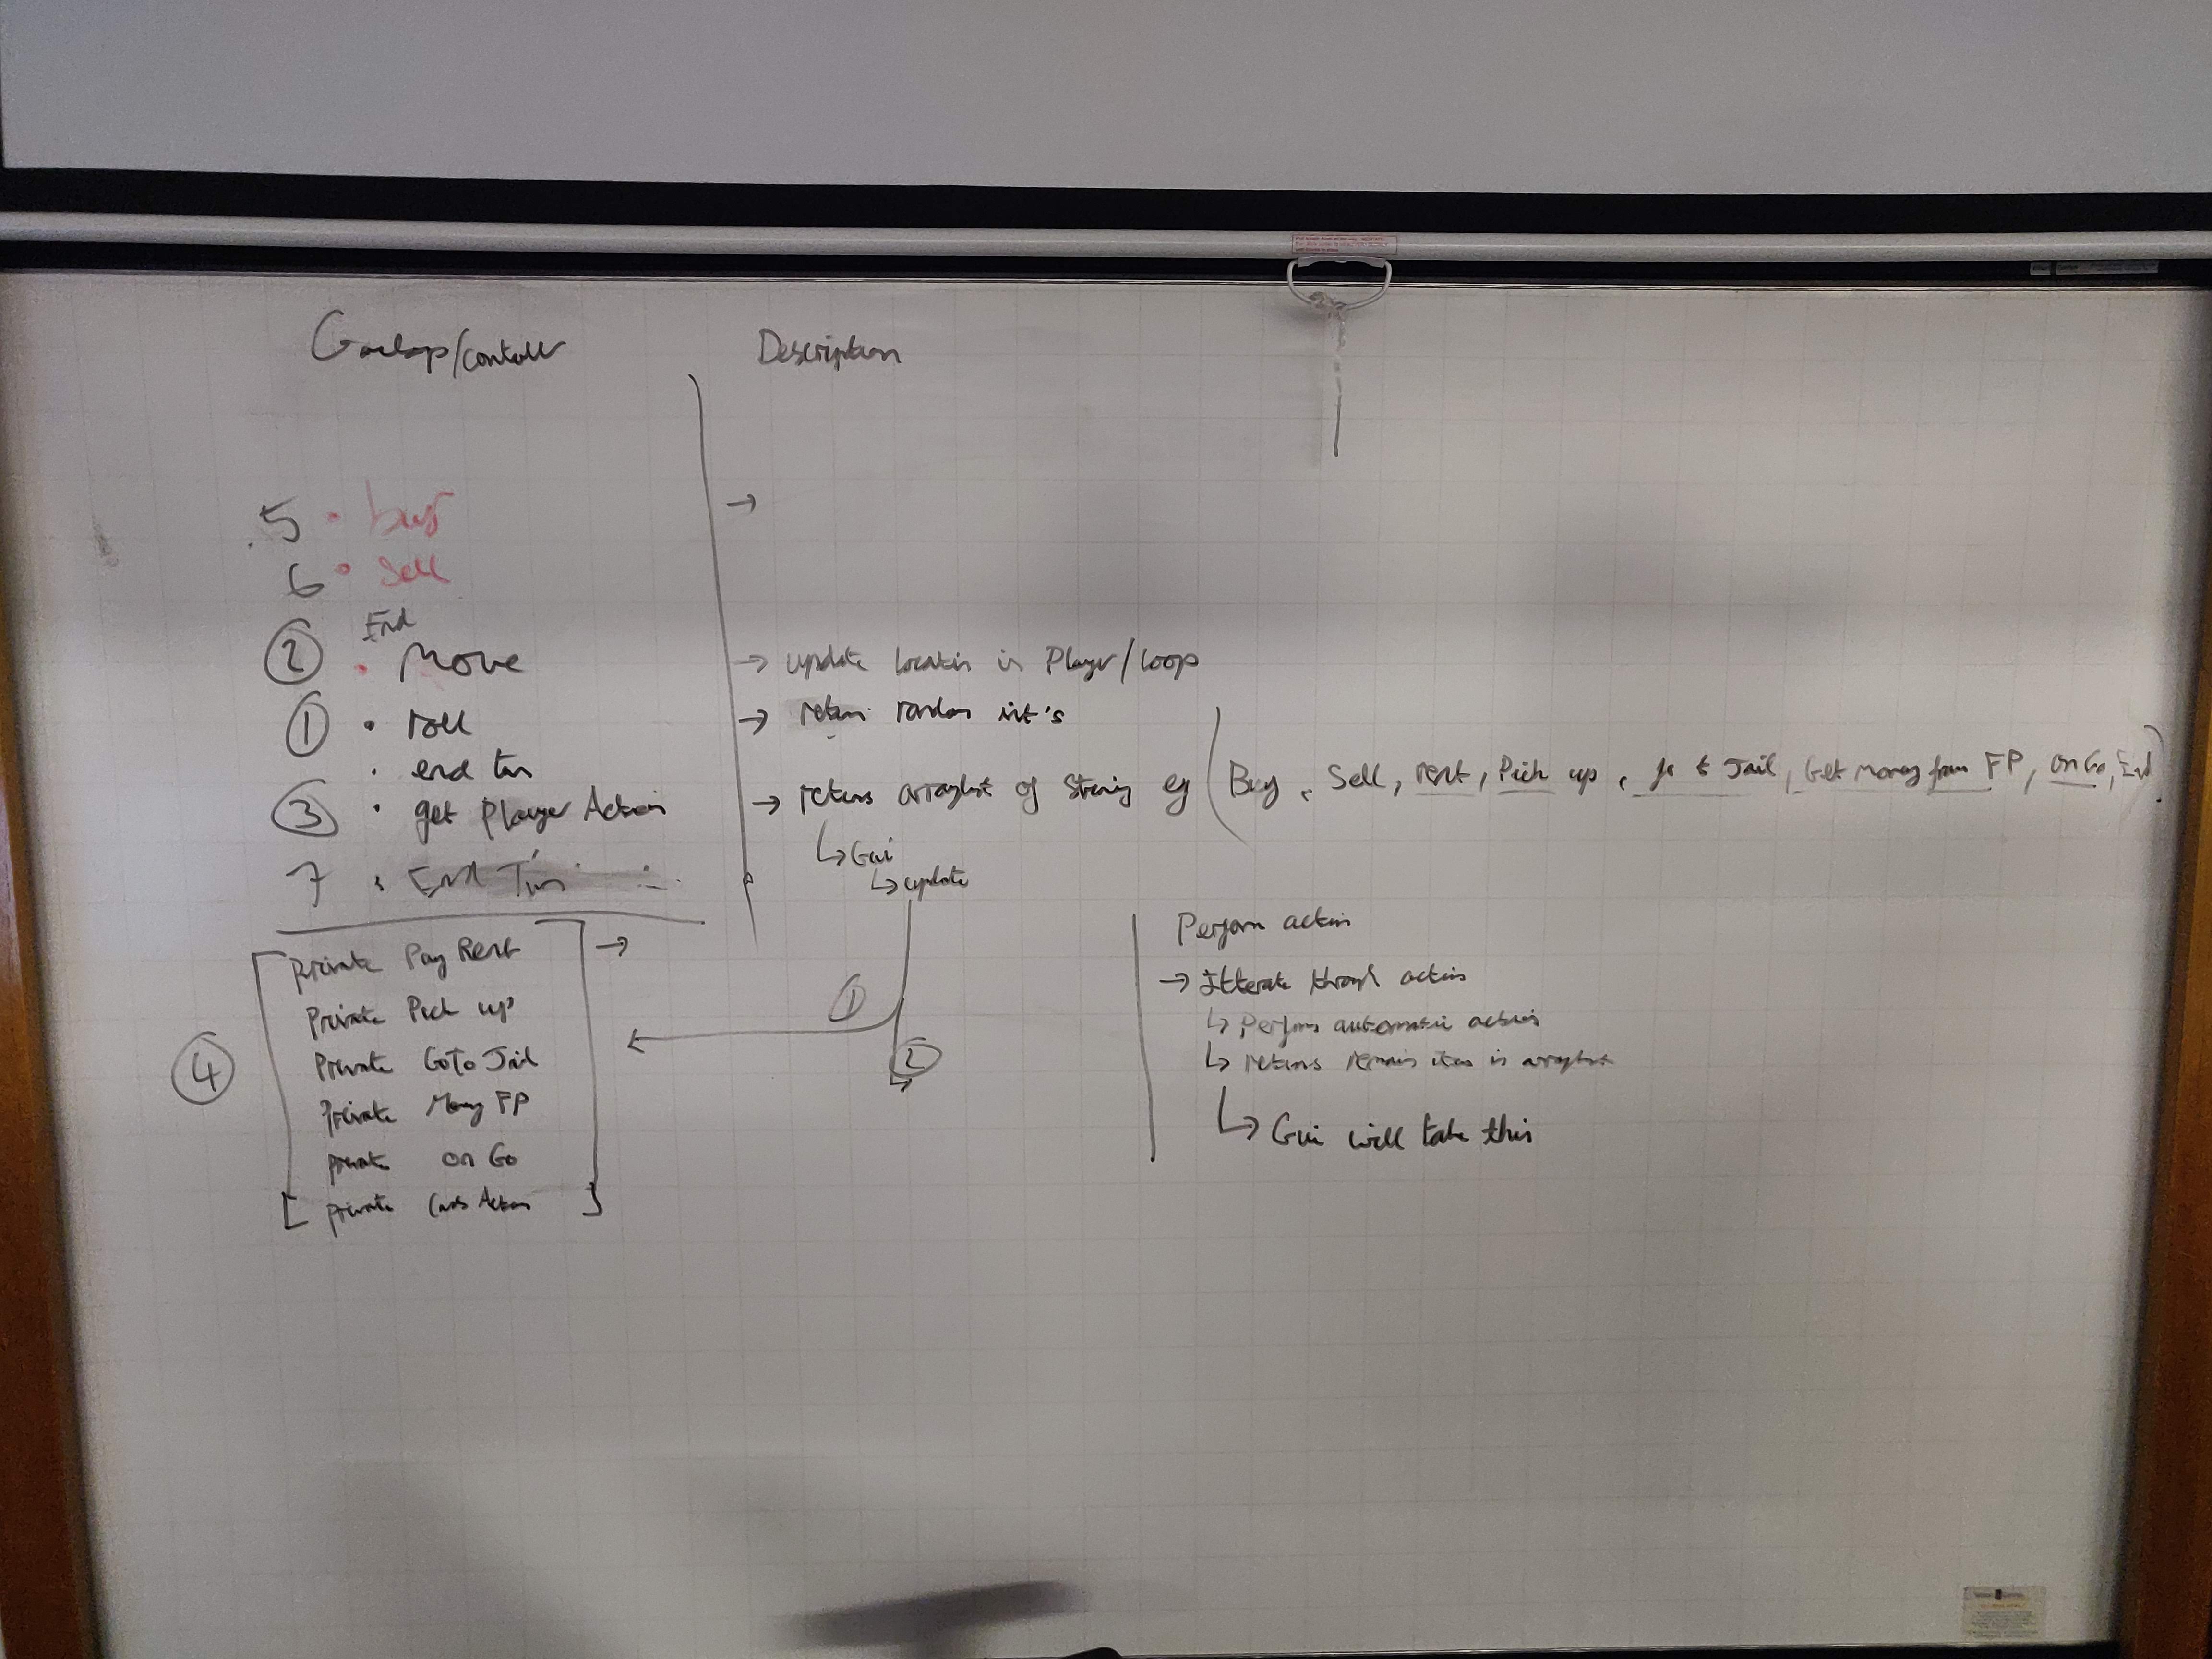 Gameloop/Controller
Description
5 • buy →
6 • Sell
End
② • Move → update location in Player/loop
① • roll → return random int's
• end turn
③ • get Player Action → returns arraylist of string eg (Buy, Sell, rent, Pick up, go to Jail, Get money from FP, on Go, End)
↳ Gui
↳ update
7 • End Turn
④
private Pay Rent →
Private Pick up
Private GoTo Jail
Private Money FP
private on Go
[ private Cards Action ]
①
②
Perform action
→ Itterate through actions
↳ Perform automatic actions
↳ returns remain items in arraylist
↳ Gui will take this